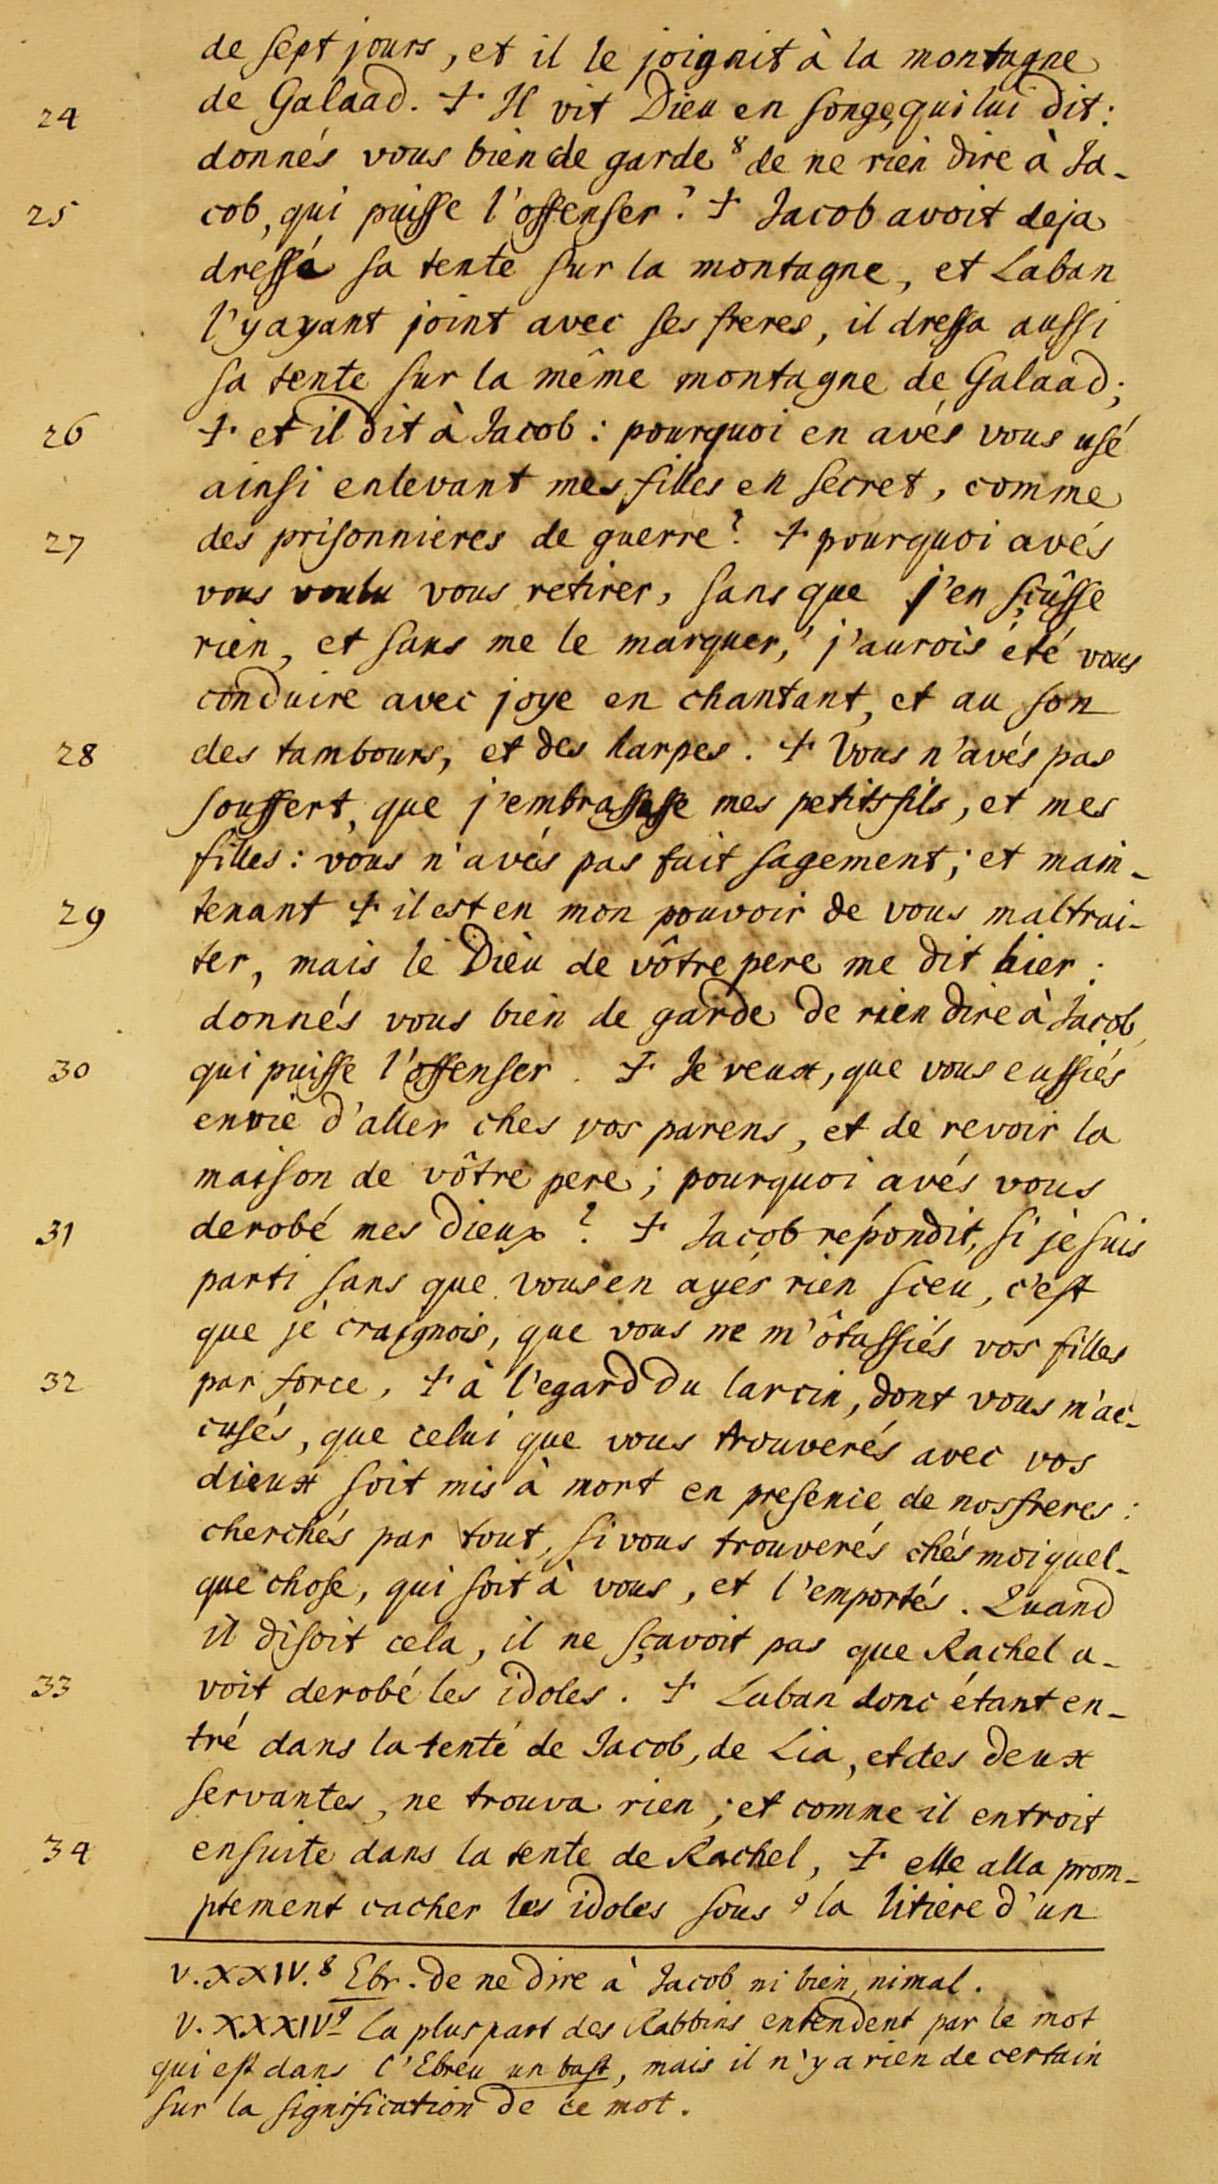 de sept jours, et il le joignit à la montagne
24 de Galaad. + Il vit Dieu en songe, qui lui dit:
donnés vous bien de garde ⁸ de ne rien dire à Ja-
25 cob, qui puisse l'offenser? + Jacob avoit deja
dressé sa tente sur la montagne, et Laban
l'y ayant joint avec ses freres, il dressa aussi
sa tente sur la même montagne de Galaad;
26 + et il dit à Jacob: pourquoi en avés vous usé
ainsi enlevant mes filles en secret, comme
27 des prisonnieres de guerre? + pourquoi avés
vous voulu vous retirer, sans que j'en sçûsse
rien, et sans me le marquer,? j'aurois été vous
conduire avec joye en chantant, et au son
28 des tambours, et des harpes. + Vous n'avés pas
souffert, que j'embrassasse mes petits fils, et mes
filles: vous n'avés pas fait sagement; et main-
29 tenant + il est en mon pouvoir de vous maltrai-
ter, mais le Dieu de vôtre pere me dit hier:
donnés vous bien de garde de rien dire à Jacob,
30 qui puisse l'offenser. + Je veux, que vous eussiés
envie d'aller ches vos parens, et de revoir la
maison de vôtre pere; pourquoi avés vous
31 derobé mes dieux? + Jacob répondit, si je suis
parti sans que vous en ayés rien sceu, c'est
que je craignois, que vous ne m'ôtassiés vos filles
32 par force, + à l'egard du larcin, dont vous m'ac-
cusés, que celui que vous trouverés avec vos
dieux soit mis à mort en presence de nos freres:
cherchés par tout, si vous trouverés chés moi quel-
que chose, qui soit à vous, et l'emportés. Quand
il disoit cela, il ne sçavoit pas que Rachel a-
33 voit derobé les idoles. + Laban donc étant en-
tré dans la tente de Jacob, de Lia, et des deux
servantes, ne trouva rien; et comme il entroit
34 ensuite dans la tente de Rachel, + elle alla prom-
ptement cacher les idoles sous ⁹ la litiere d'un
V. XXIV. ⁸ Ebr. de ne dire à Jacob ni bien, ni mal.
V. XXXIV ⁹ La pluspart des Rabbins entendent par le mot
qui est dans l'Ebreu un bast, mais il n'y a rien de certain
sur la signification de ce mot.